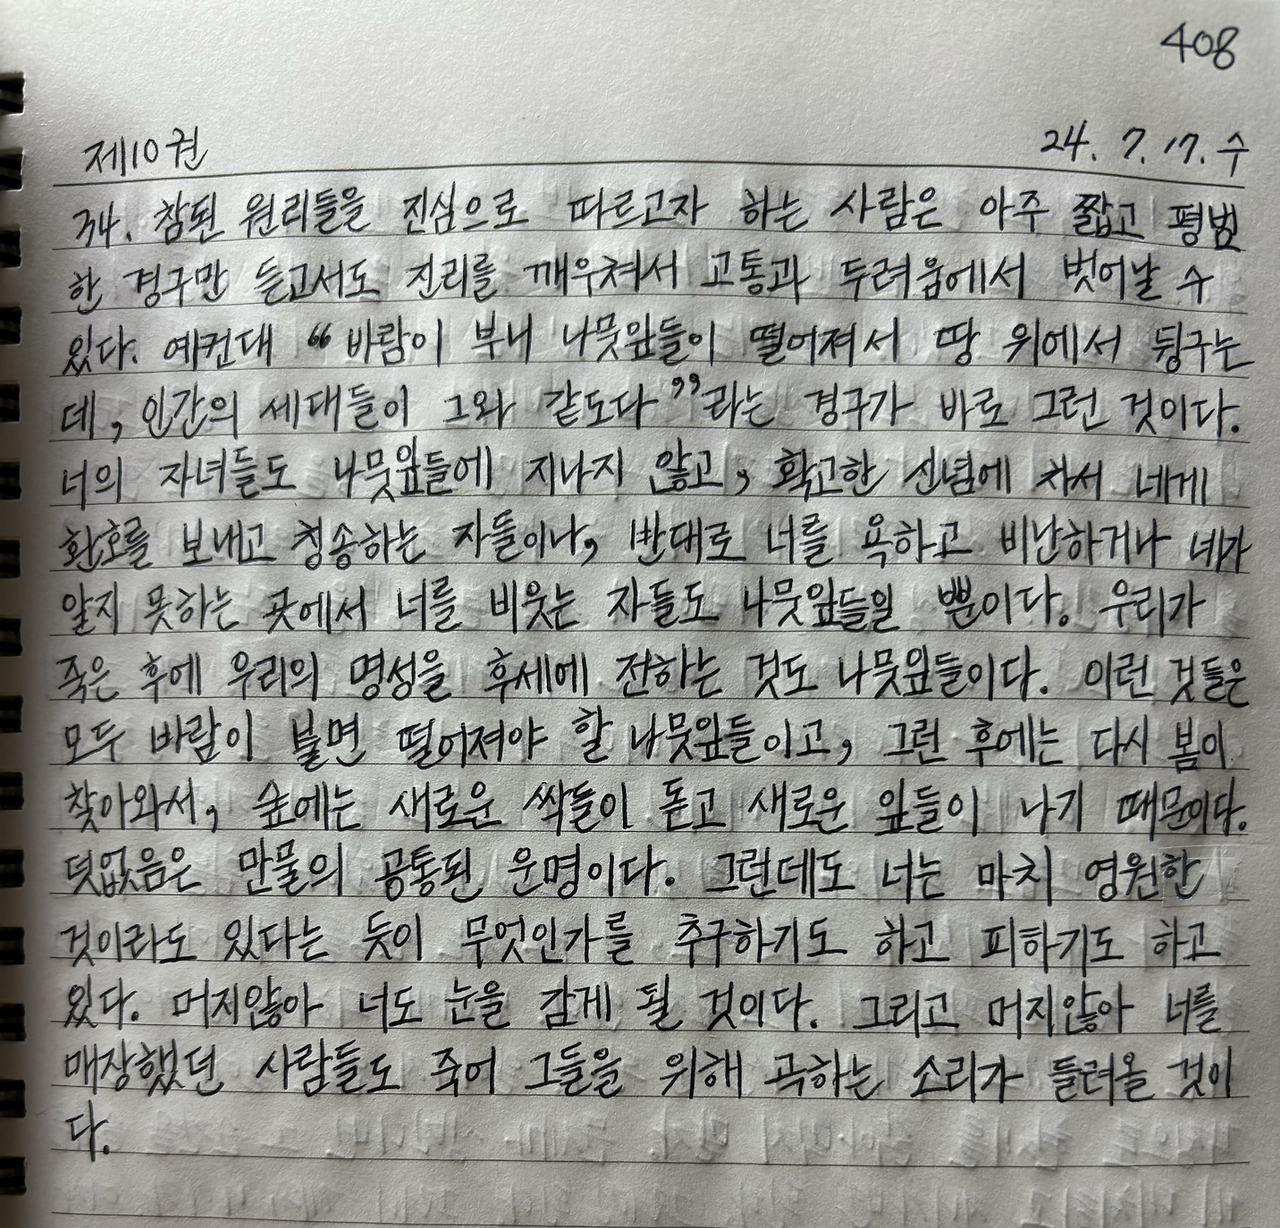 408
제10권 24. 7. 17. 수
34. 참된 원리들을 진심으로 따르고자 하는 사람은 아주 짧고 평범
한 경구만 듣고서도 진리를 깨우쳐서 고통과 두려움에서 벗어날 수
있다. 예컨대 “바람이 부니 나뭇잎들이 떨어져서 땅 위에서 뒹구는
데, 인간의 세대들이 그와 같도다”라는 경구가 바로 그런 것이다.
너의 자녀들도 나뭇잎들에 지나지 않고, 확고한 신념에 차서 네게
환호를 보내고 칭송하는 자들이나, 반대로 너를 욕하고 비난하거나 네가
알지 못하는 곳에서 너를 비웃는 자들도 나뭇잎들일 뿐이다. 우리가
죽은 후에 우리의 명성을 후세에 전하는 것도 나뭇잎들이다. 이런 것들은
모두 바람이 불면 떨어져야 할 나뭇잎들이고, 그런 후에는 다시 봄이
찾아와서, 숲에는 새로운 싹들이 돋고 새로운 잎들이 나기 때문이다.
덧없음은 만물의 공통된 운명이다. 그런데도 너는 마치 영원한
것이라도 있다는 듯이 무엇인가를 추구하기도 하고 피하기도 하고
있다. 머지않아 너도 눈을 감게 될 것이다. 그리고 머지않아 너를
매장했던 사람들도 죽어 그들을 위해 곡하는 소리가 들려올 것이
다.